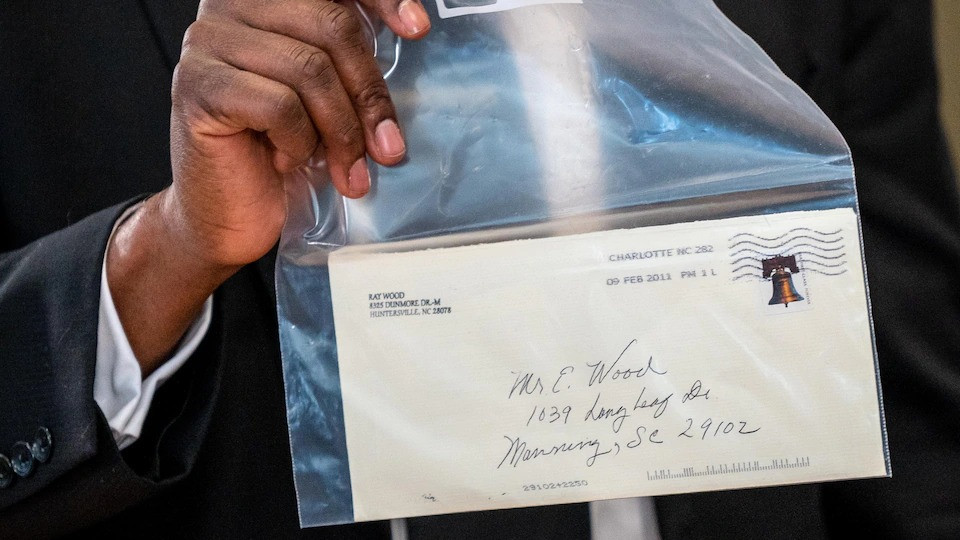 CHARLOTTE NC 282
09 FEB 2011 PM 1 L
RAY WOOD
8325 DUNMORE DR.-M
HUNTERSVILLE, NC 28078
Mr. E. Wood
1039 Long Leaf Dr.
Manning, SC 29102
2910242250